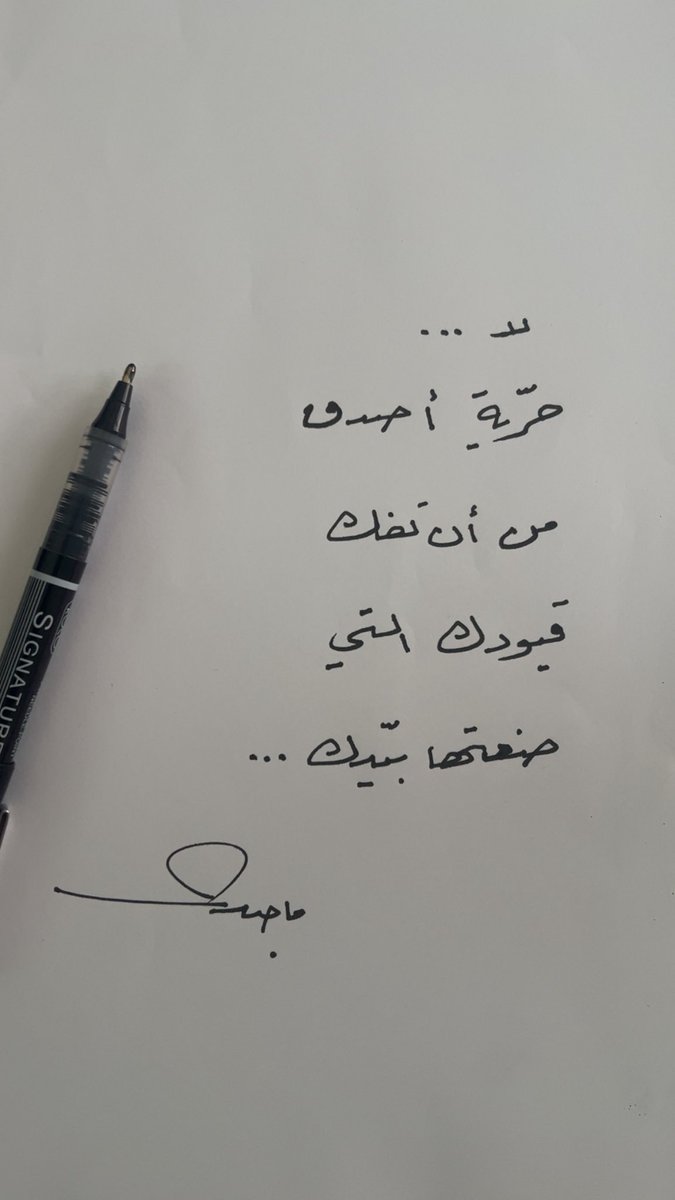 لا ...
حرّية أصدق
من أن تفك
قيودك التي
صنعتها بيّدك ...
ماجد
SIGNATURE